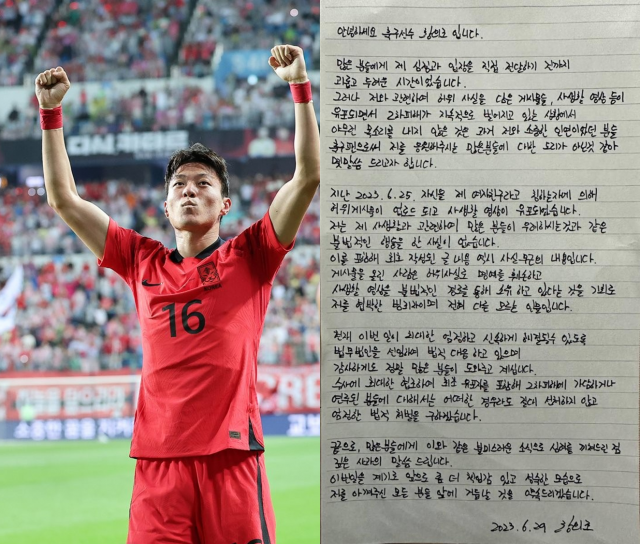 16
소중한 꿈을 지키
안녕하세요 축구선수 황의조 입니다.
많은 분들에게 제 심정과 입장을 직접 전달하기 전까지
괴롭고 두려운 시간이었습니다.
그러나 저와 관련하여 허위 사실을 담은 게시물, 사생활 영상 등이
유포되면서 2차피해가 지속적으로 벌어지고 있는 상황에서
아무런 목소리를 내지 않은 것은 과거 저와 소중한 인연이었던 분들
축구팬으로써 저를 응원해주시는 많은분들에 대한 도리가 아닌것 같아
몇말씀 드리고자 합니다.
지난 2023.6.25. 자신을 제 여자친구라고 칭하는자에 의해
허위게시물이 업로드 되고 사생활 영상이 유포되었습니다.
저는 제 사생활과 관련하여 많은 분들이 우려하시는것과 같은
불법적인 행동을 한 사실이 없습니다.
이를 포함해 최초 작성된 글 내용 역시 사실무근의 내용입니다.
게시물을 올린 사람은 허위사실로 명예를 훼손하고
사생활 영상을 불법적인 경로를 통해 소유 하고 있다는 것을 기회로
저를 협박한 범죄자이며 전혀 다른 모르는 인물입니다.
현재 이번 일이 최대한 엄정하고 신속하게 해결될수 있도록
법무법인을 선임하여 법적 대응 하고 있으며
감사하게도 정말 많은 분들이 도와주고 계십니다.
수사에 최대한 협조하여 최초 유포자를 포함해 2차피해에 가담하거나
연루된 분들에 대해서는 어떠한 경우라도 절대 선처하지 않고
엄정한 법적 처벌을 구하겠습니다.
끝으로, 많은분들에게 이와 같은 불미스러운 소식으로 심려를 끼쳐드린 점
깊은 사과의 말씀 드립니다.
이번일을 계기로 앞으로 좀 더 책임감 있고 성숙한 모습으로
저를 아껴주신 모든 분들 앞에 거듭날 것을 약속드리겠습니다.
2023.6.29 황의조